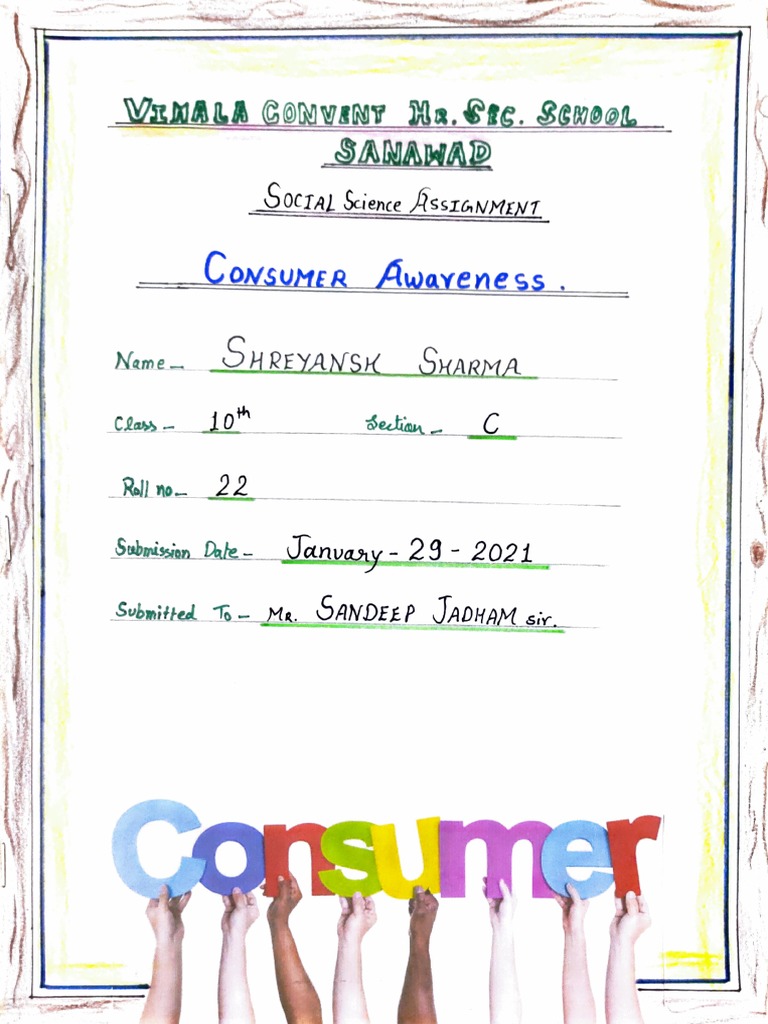 VIMALA CONVENT HR. SEC. SCHOOL
SANAWAD
SOCIAL Science ASSIGNMENT
CONSUMER Awareness.
Name - SHREYANSH SHARMA
Class - 10th Section - C
Roll no - 22
Submission Date - January - 29 - 2021
Submitted To - MR. SANDEEP JADHAM sir.
Consumer